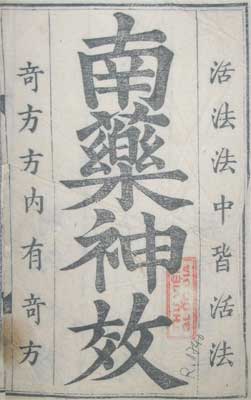 活法法中皆活法
南藥神效
竒方方内有竒方